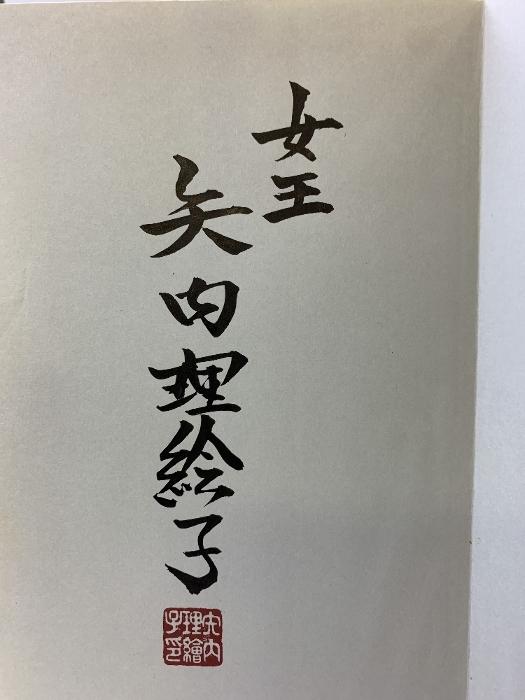 女王
矢内理絵子
矢内理繪子印